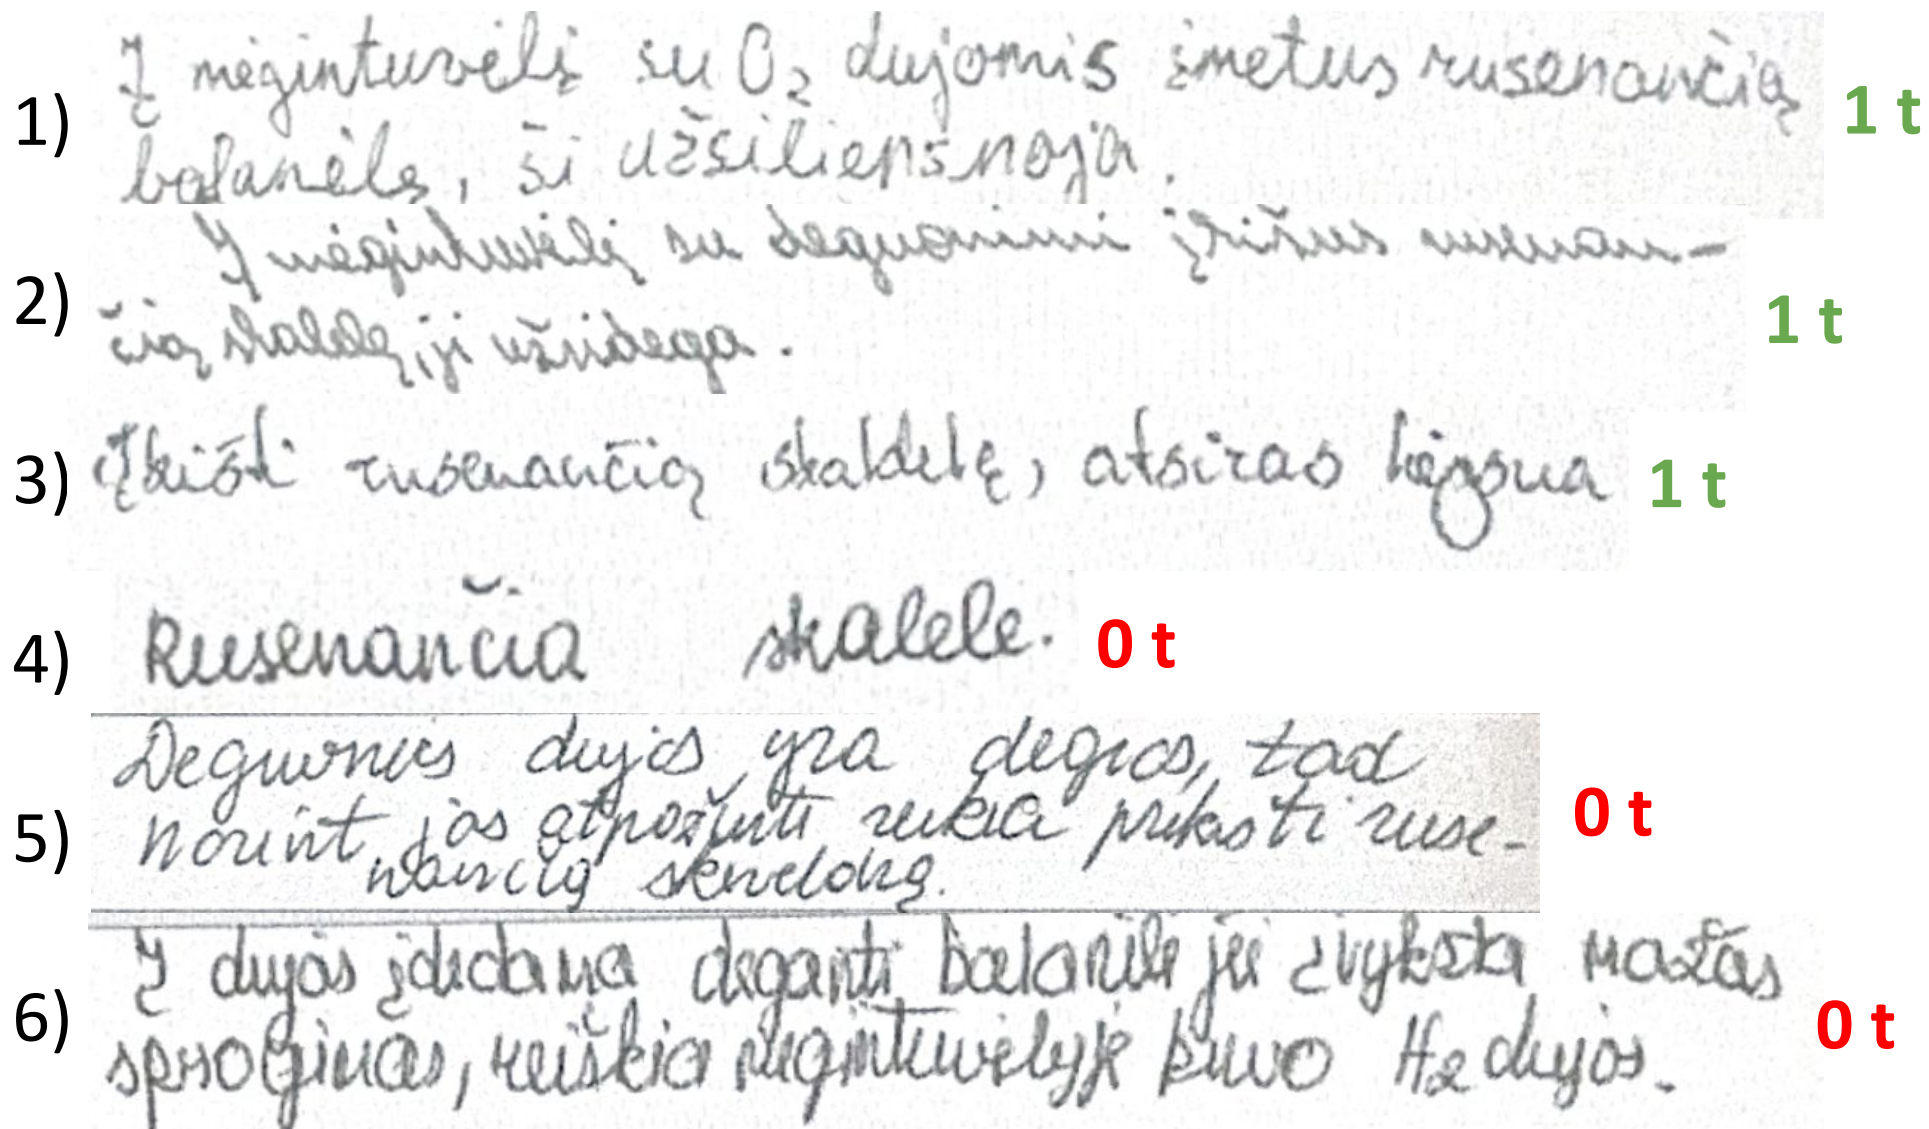 1) Į mėgintuvėlį su O₂ dujomis įmetus rusenančią 1 t
balanėlę, ši užsiliepsnoja.
2) Į mėgintuvėlį su deguonimi įkišus rusenan-
čią skaldelę, ji užsidega. 1 t
3) Įkišti rusenančią skaldelę, atsiras liepsna 1 t
4) Rusenančia skalele. 0 t
5) Deguonies dujos yra degios, tad
norint jas atpažinti reikia prikišti ruse- 0 t
nančią skeveldrą.
6) Į dujas įdedama deganti balanėlė jei įvyksta mažas
sprogimas, reiškia mėgintuvėlyje buvo H₂ dujos. 0 t